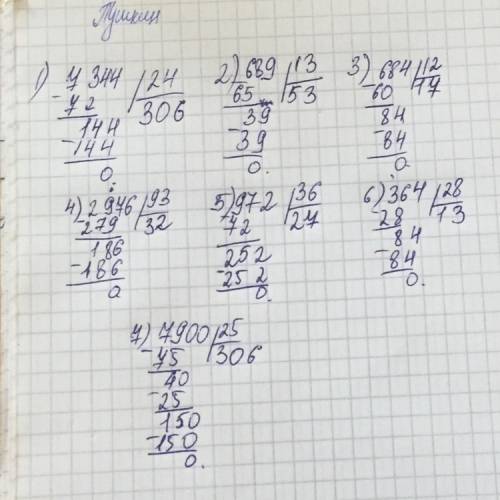 Пушкин
1) 7344 | 24
- 72 | 306
144
- 144
0
2) 689 | 13
65 | 53
39
- 39
0.
3) 684 | 12
- 60 | 17
84
- 84
0
4) 2976 | 93
- 279 | 32
186
- 186
0
5) 972 | 36
- 72 | 27
252
- 252
0.
6) 364 | 28
- 28 | 13
84
- 84
0.
7) 7900 | 25
- 75 | 306
40
- 25
150
- 150
0.